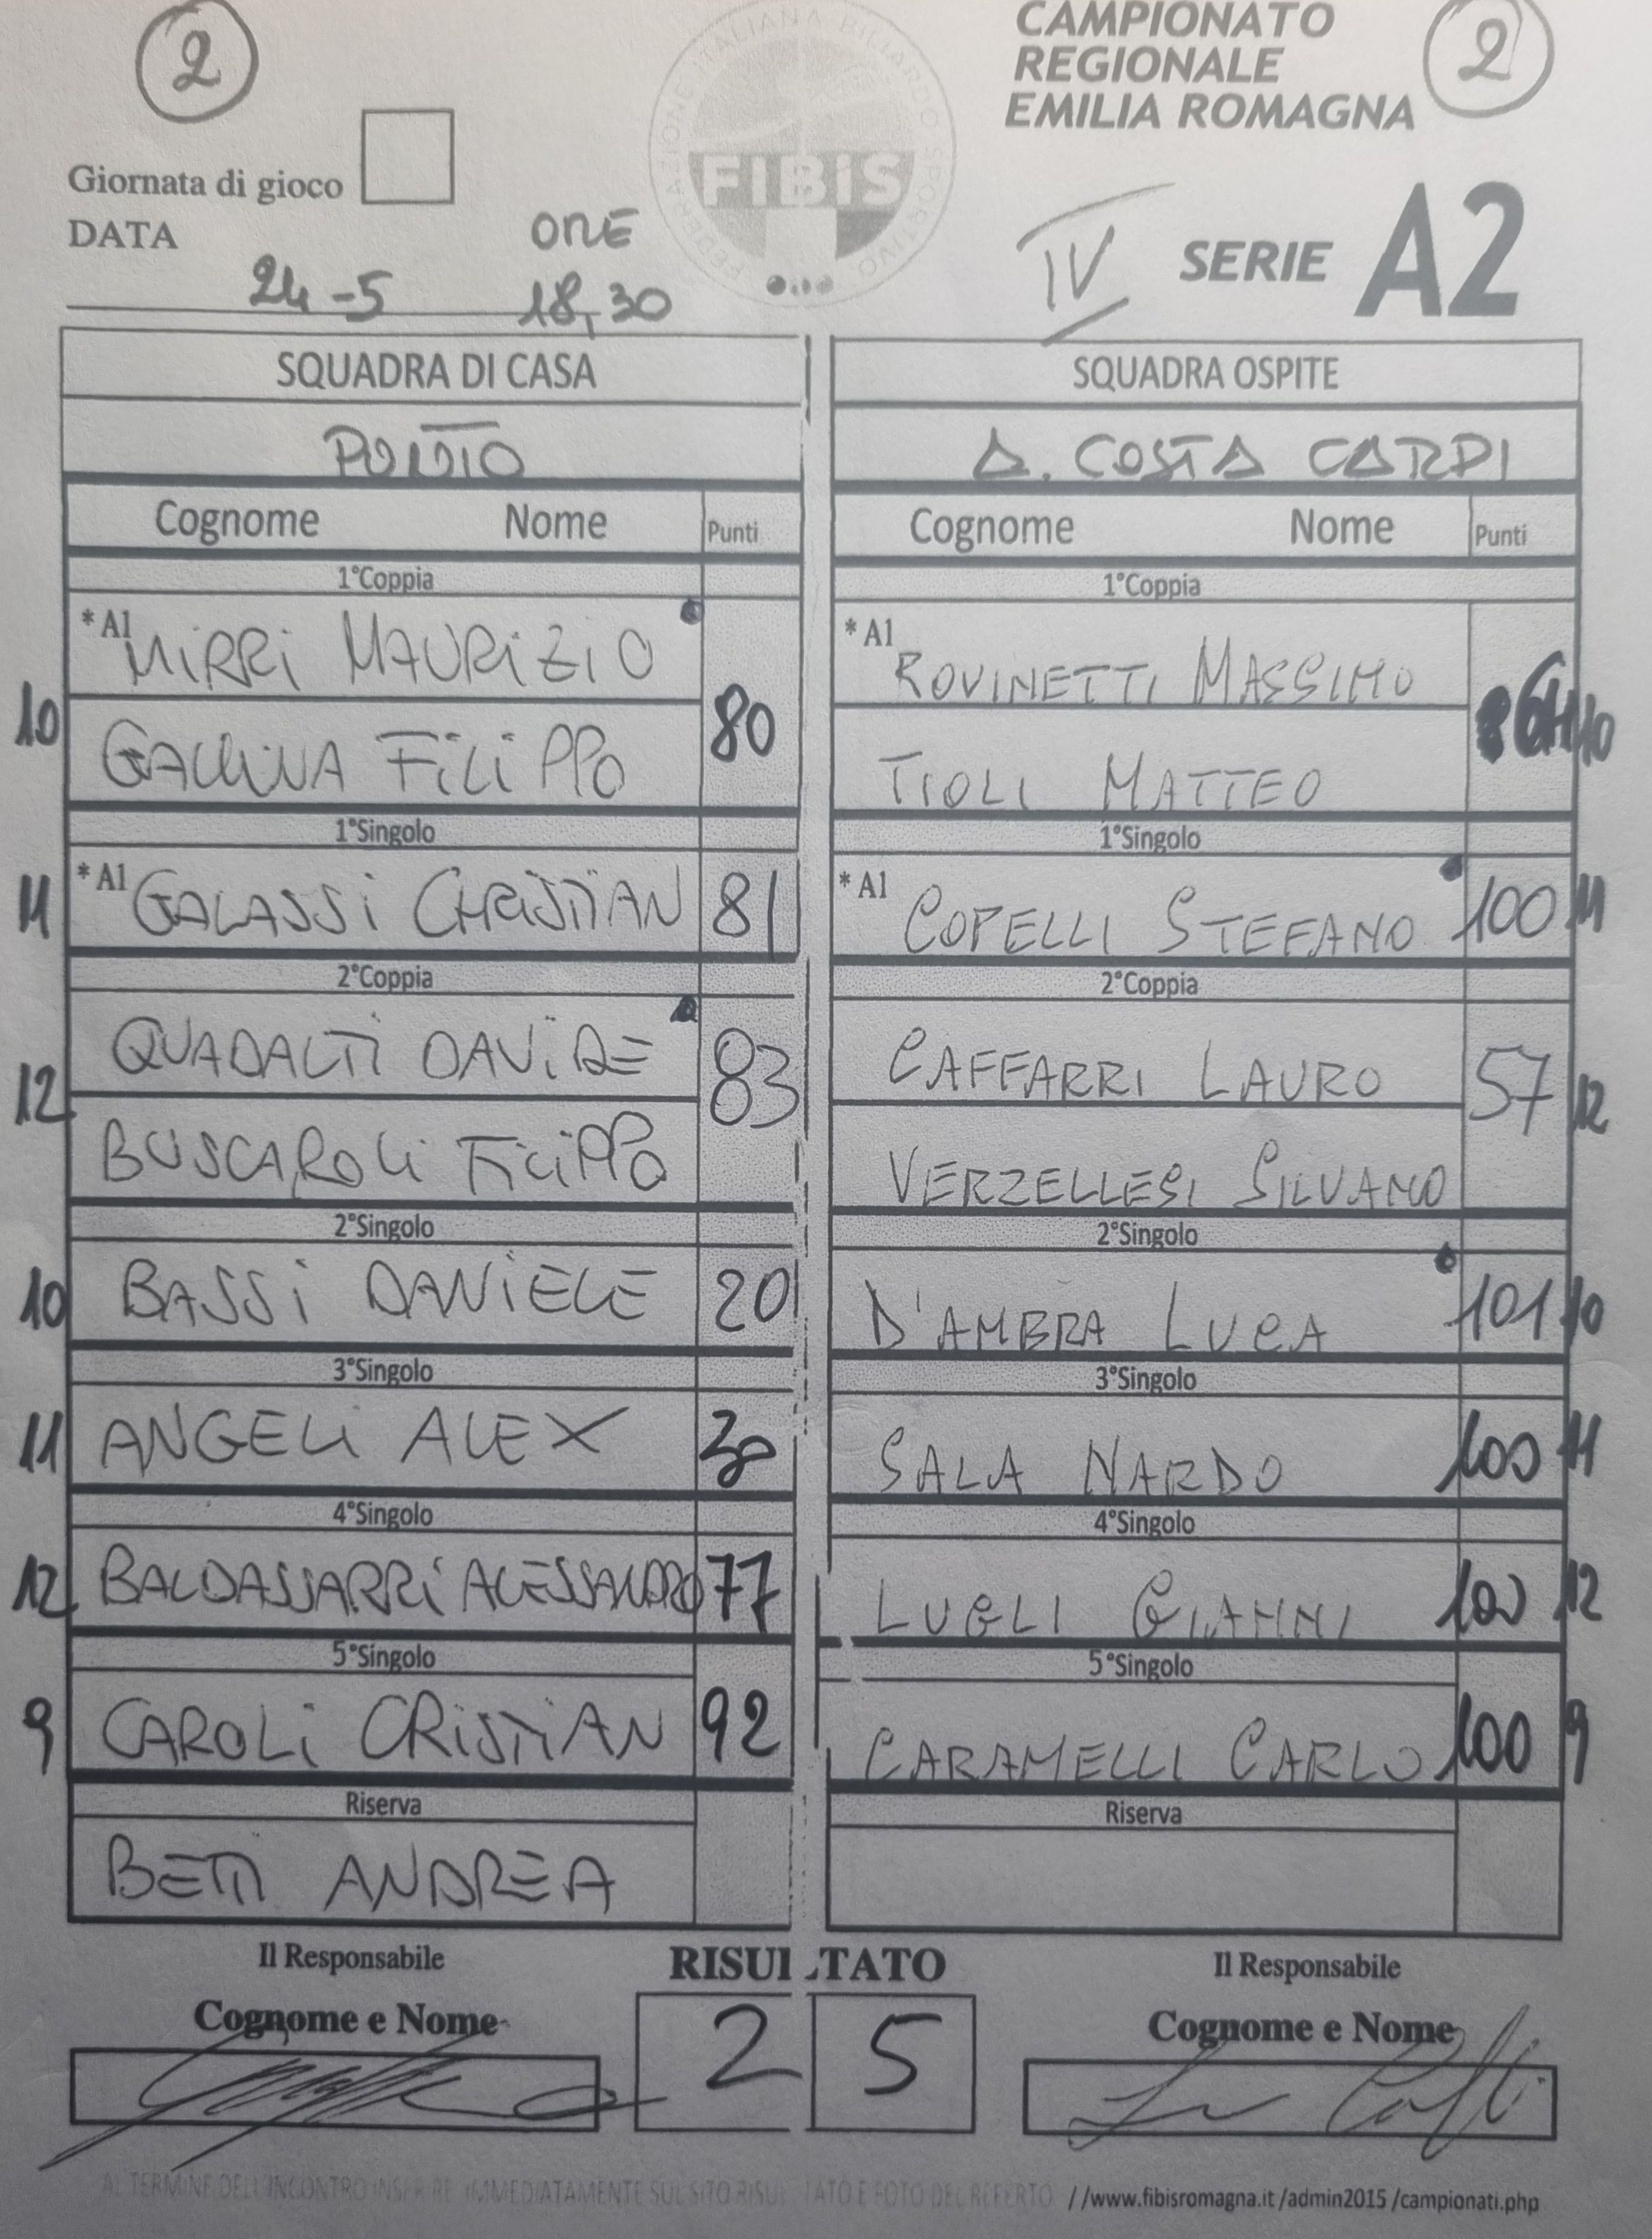 2
CAMPIONATO
REGIONALE
EMILIA ROMAGNA
2
Giornata di gioco
FEDERAZIONE ITALIANA BILIARDO SPORTIVO
FIBiS
DATA
24-5
ORE
18,30
IV SERIE A2
SQUADRA DI CASA SQUADRA OSPITE
A. COSTA CARPI
Cognome Nome Punti Cognome Nome Punti
1°Coppia 1°Coppia
*A1 MIRRI MAURIZIO *A1 ROVINETTI MASSIMO
10 80 10
GALLINA FILIPPO TIOLI MATTEO
1°Singolo 1°Singolo
11 *A1 GALASSI CHRISTIAN 81 *A1 COPELLI STEFANO 100 11
2°Coppia 2°Coppia
QUADALTI DAVIDE CAFFARRI LAURO
12 83 57 12
BUSCAROLI FILIPPO VERZELLESI SILVANO
2°Singolo 2°Singolo
10 BASSI DANIELE 20 D'AMBRA LUCA 101 10
3°Singolo 3°Singolo
11 ANGELI ALEX SALA NARDO 100 11
4°Singolo 4°Singolo
12 BALDASSARRI ALESSANDRO 77 LUGLI GIANNI 100 12
5°Singolo 5°Singolo
9 CAROLI CRISTIAN 92 CARAMELLI CARLO 100 9
Riserva Riserva
BETTI ANDREA
Il Responsabile RISULTATO Il Responsabile
Cognome e Nome 2 5 Cognome e Nome
AL TERMINE DELL'INCONTRO INSERIRE IMMEDIATAMENTE SUL SITO RISULTATO E FOTO DEL REFERTO //www.fibisromagna.it/admin2015/campionati.php